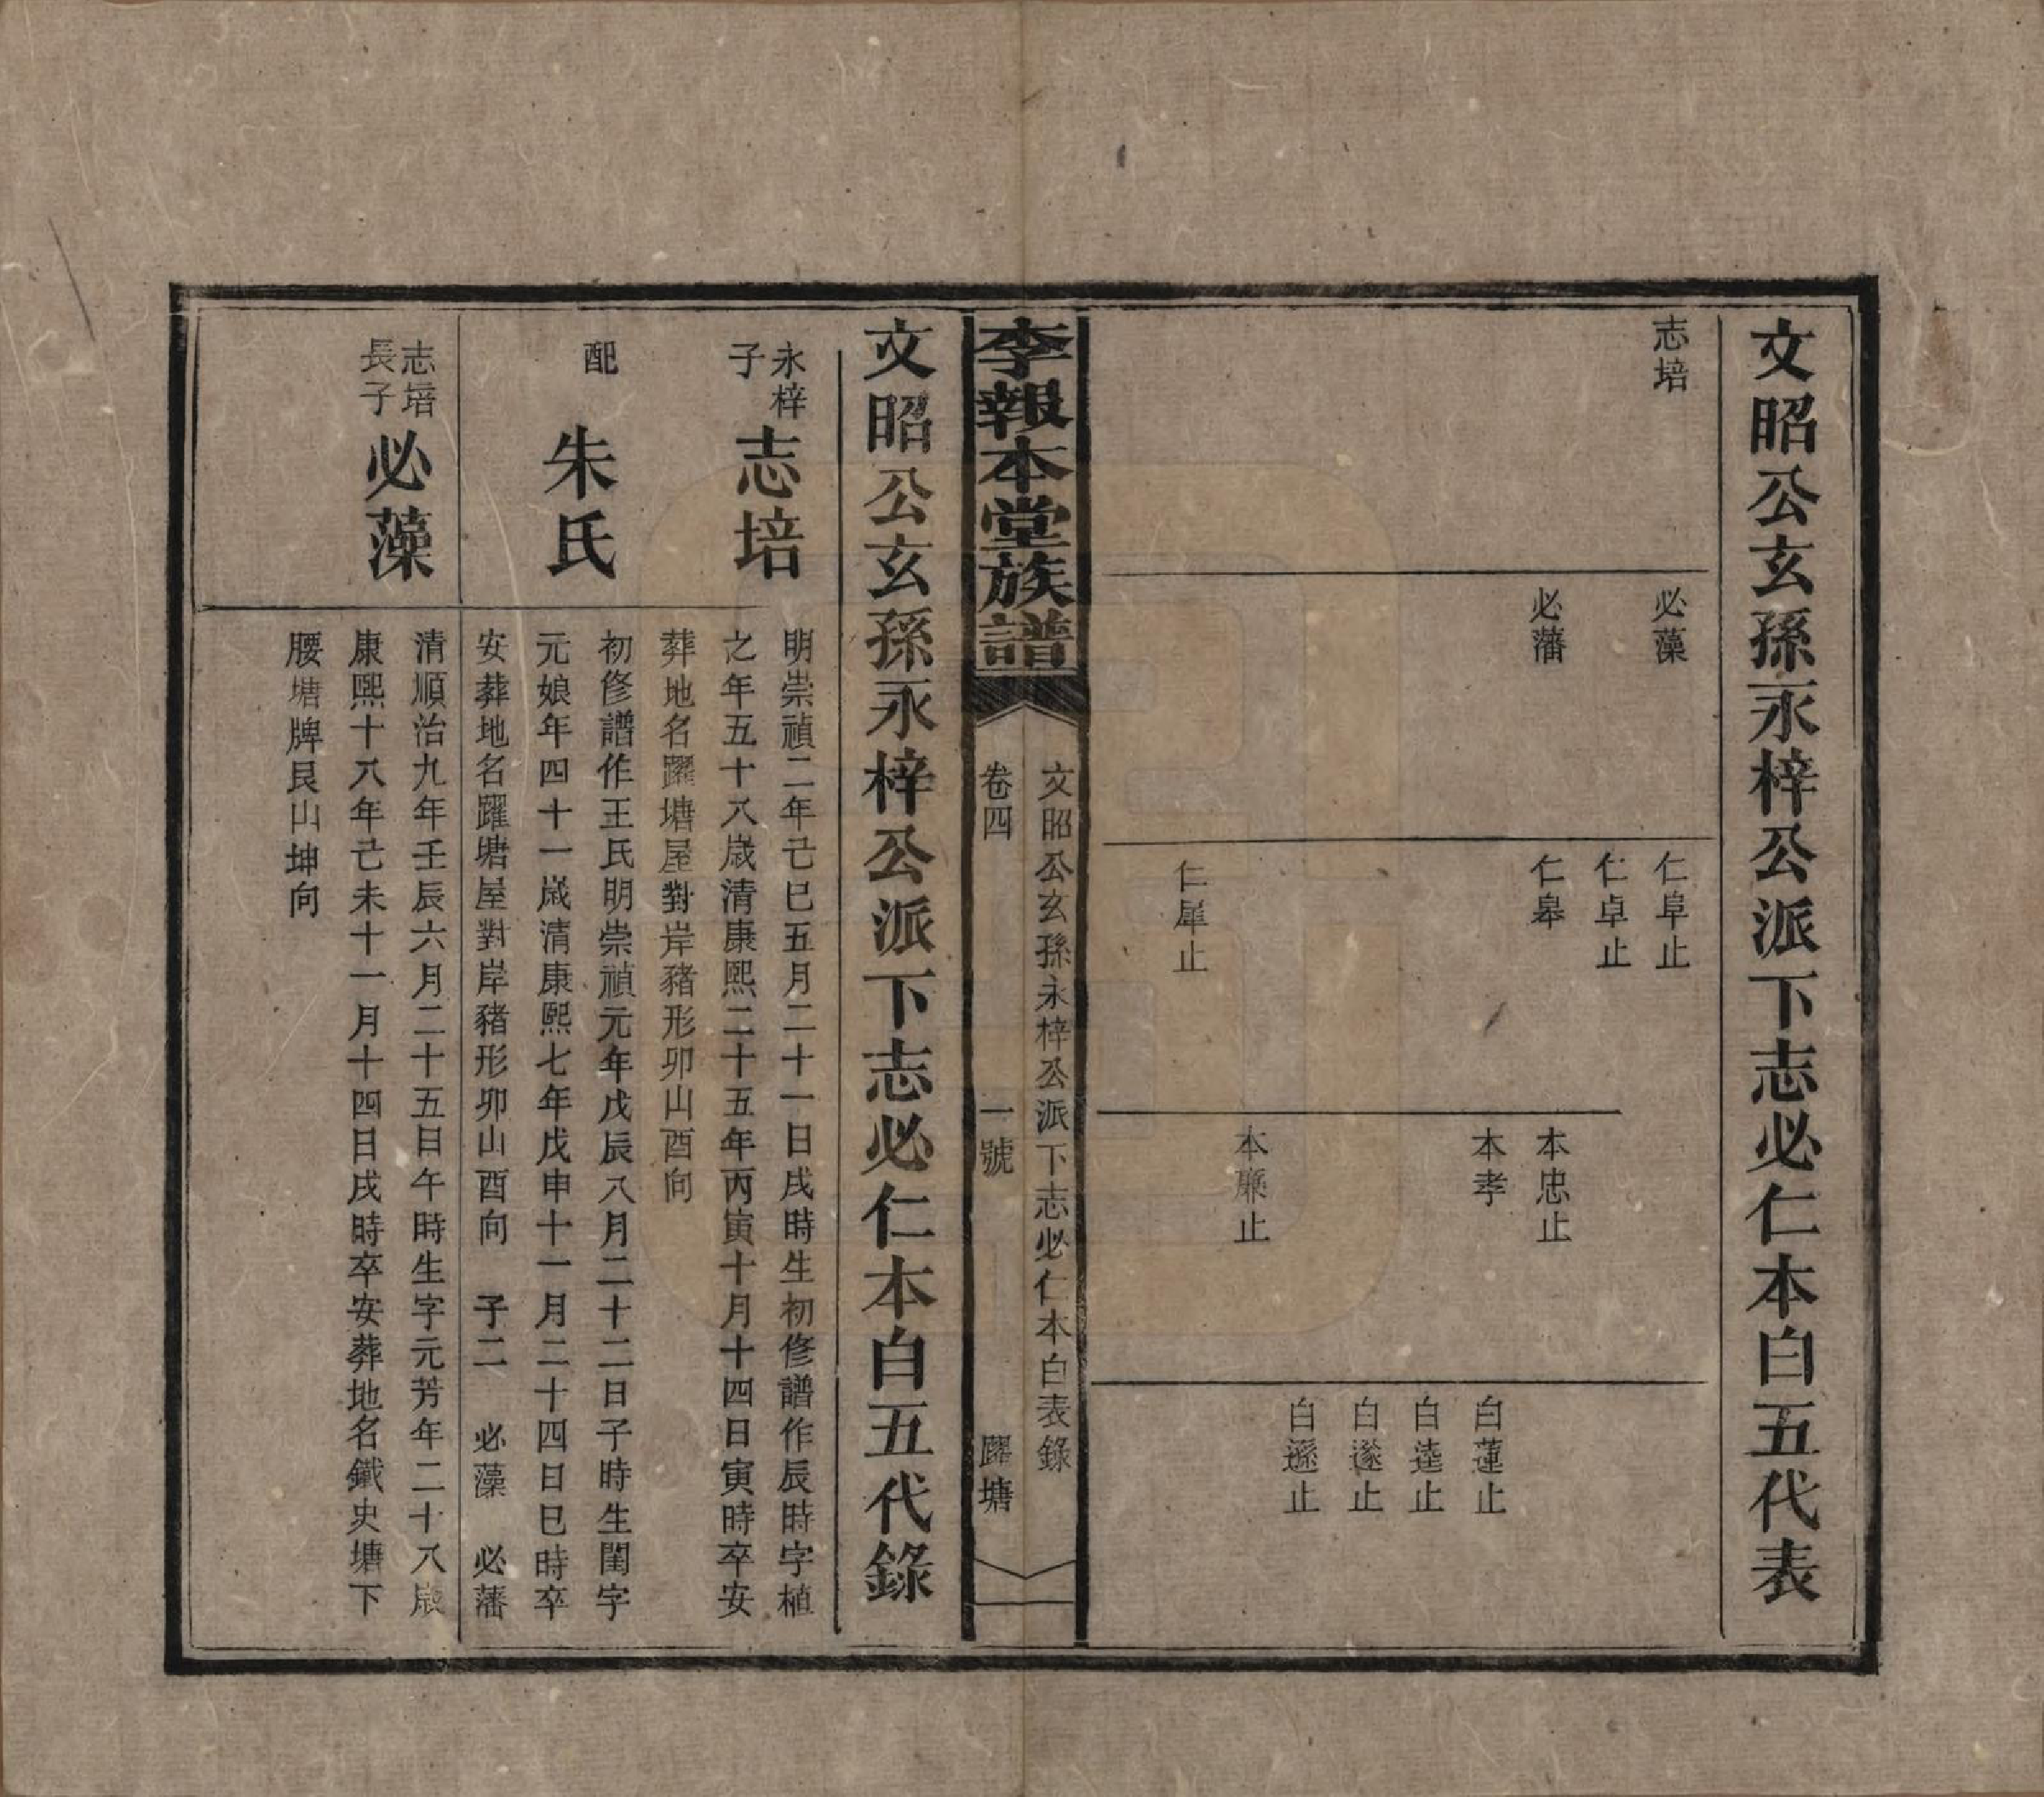 文昭公玄孫永梓公派下志必仁本白五代表
志培
必藻
必藩
仁阜止
仁卓止
仁皋
仁犀止
本忠止
本孝
本廉止
白蓮止
白逵止
白邃止
白遜止
文昭公玄孫永梓公派下志必仁本白表錄
李報本堂族譜
卷四
一號
躍塘
文昭公玄孫永梓公派下志必仁本白五代錄
永梓
子
志培
明崇禎二年己巳五月二十一日戌時生初修譜作辰時字植
之年五十八歲清康熙二十五年丙寅十月十四日寅時卒安
葬地名躍塘屋對岸豬形卯山酉向
配
朱氏
初修譜作王氏明崇禎元年戊辰八月二十二日子時生閨字
元娘年四十一歲清康熙七年戊申十一月二十四日巳時卒
安葬地名躍塘屋對岸豬形卯山酉向 子二 必藻 必藩
志培
長子
必藻
清順治九年壬辰六月二十五日午時生字元芳年二十八歲
康熙十八年己未十一月十四日戌時卒安葬地名鐵史塘下
腰塘牌艮山坤向